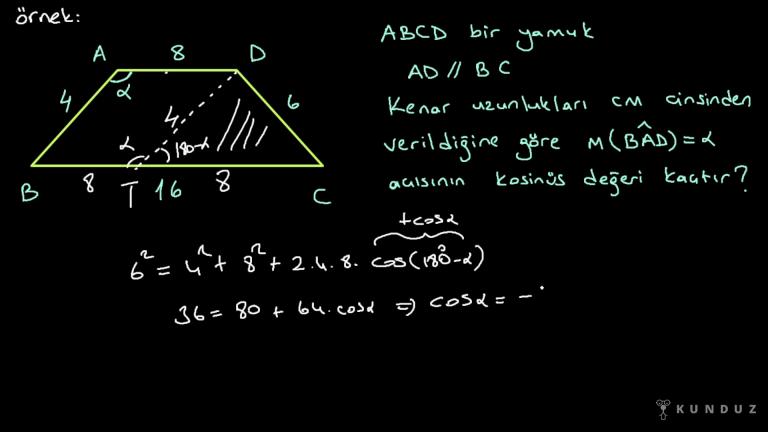 örnek:
A 8 D
4 α 4 6
α 180-α
B 8 T 16 8 C
ABCD bir yamuk
AD // BC
Kenar uzunlukları cm cinsinden
verildiğine göre m(BÂD) = α
açısının kosinüs değeri kaçtır?
+cosα
6² = 4² + 8² + 2.4.8. cos(180°-α)
36 = 80 + 64.cosα ⇒ cosα = -
KUNDUZ